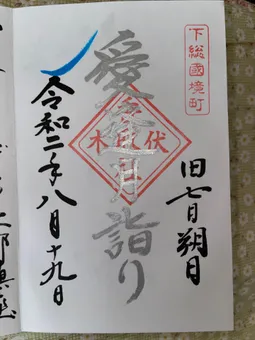 下総國境町
旧七月朔日
愛逢月詣り
伏木
令和二年八月十九日